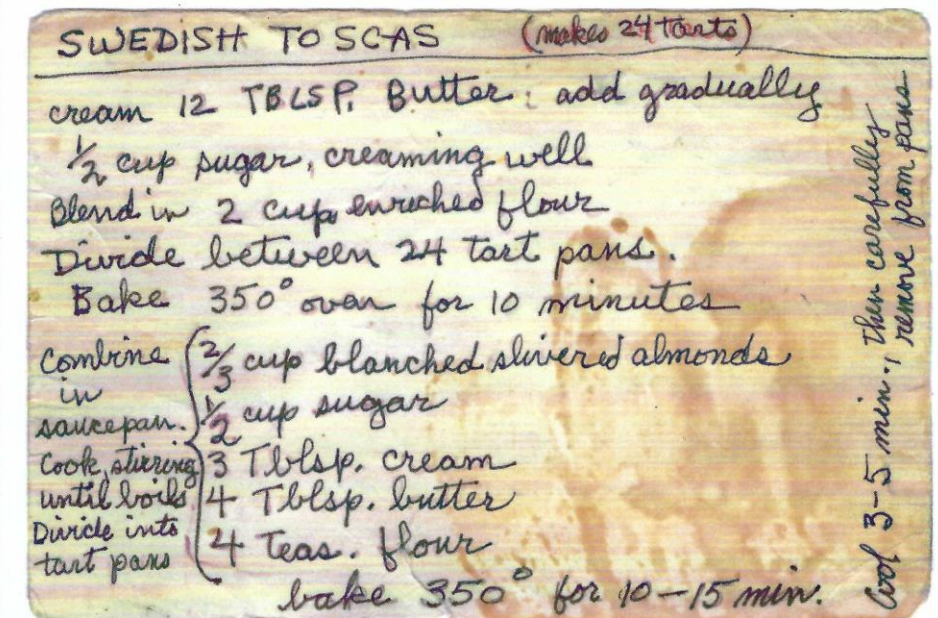 SWEDISH TOSCAS (makes 24 tarts)
cream 12 TBLSP. Butter; add gradually
1/2 cup sugar, creaming well
Blend in 2 cup enriched flour
Divide between 24 tart pans.
Bake 350° oven for 10 minutes
Combine
in
saucepan.
Cook, stirring
until boils
Divide into
tart pans
2/3 cup blanched slivered almonds
1/2 cup sugar
3 Tblsp. cream
4 Tblsp. butter
4 Teas. flour
bake 350° for 10-15 min.
Cool 3-5 min., then carefully
remove from pans